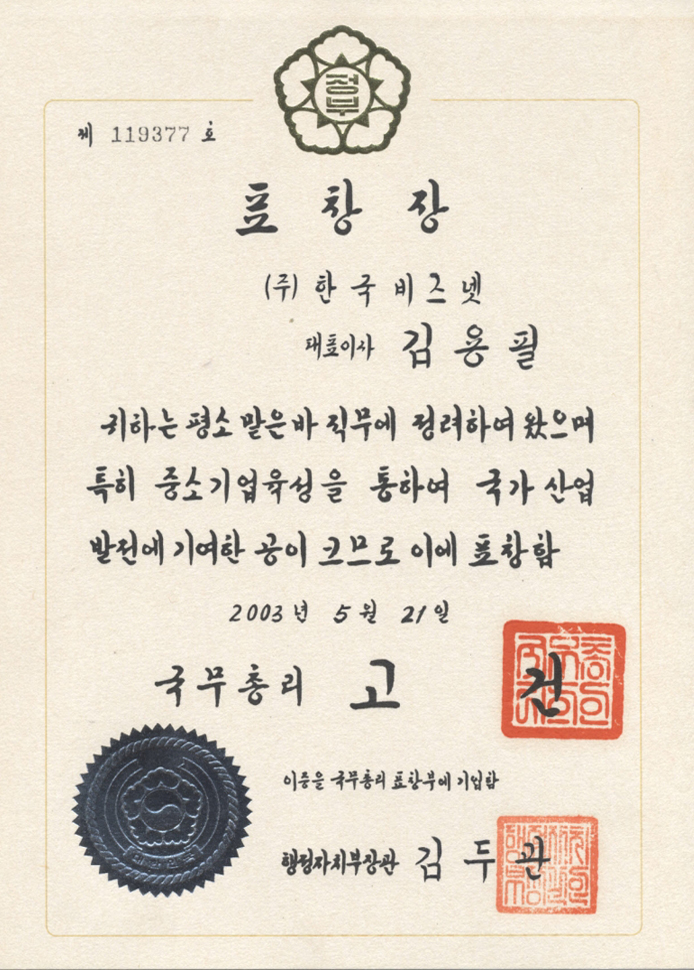 정부
제 119377 호
표창장
(주) 한국비즈넷
대표이사 김용필
귀하는 평소 맡은바 직무에 정려하여 왔으며
특히 중소기업육성을 통하여 국가 산업
발전에 기여한 공이 크므로 이에 표창함
2003년 5월 21일
국무총리 고 건
이증을 국무총리 표창부에 기입함
행정자치부장관 김두관
대한민국